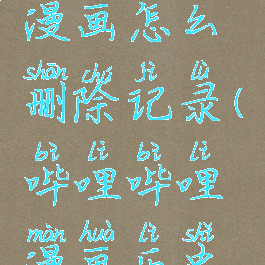 漫画怎么
shān chú jì lù
删除记录(
bì lì bì lì
哔哩哔哩
màn huà lì shǐ
漫画历史